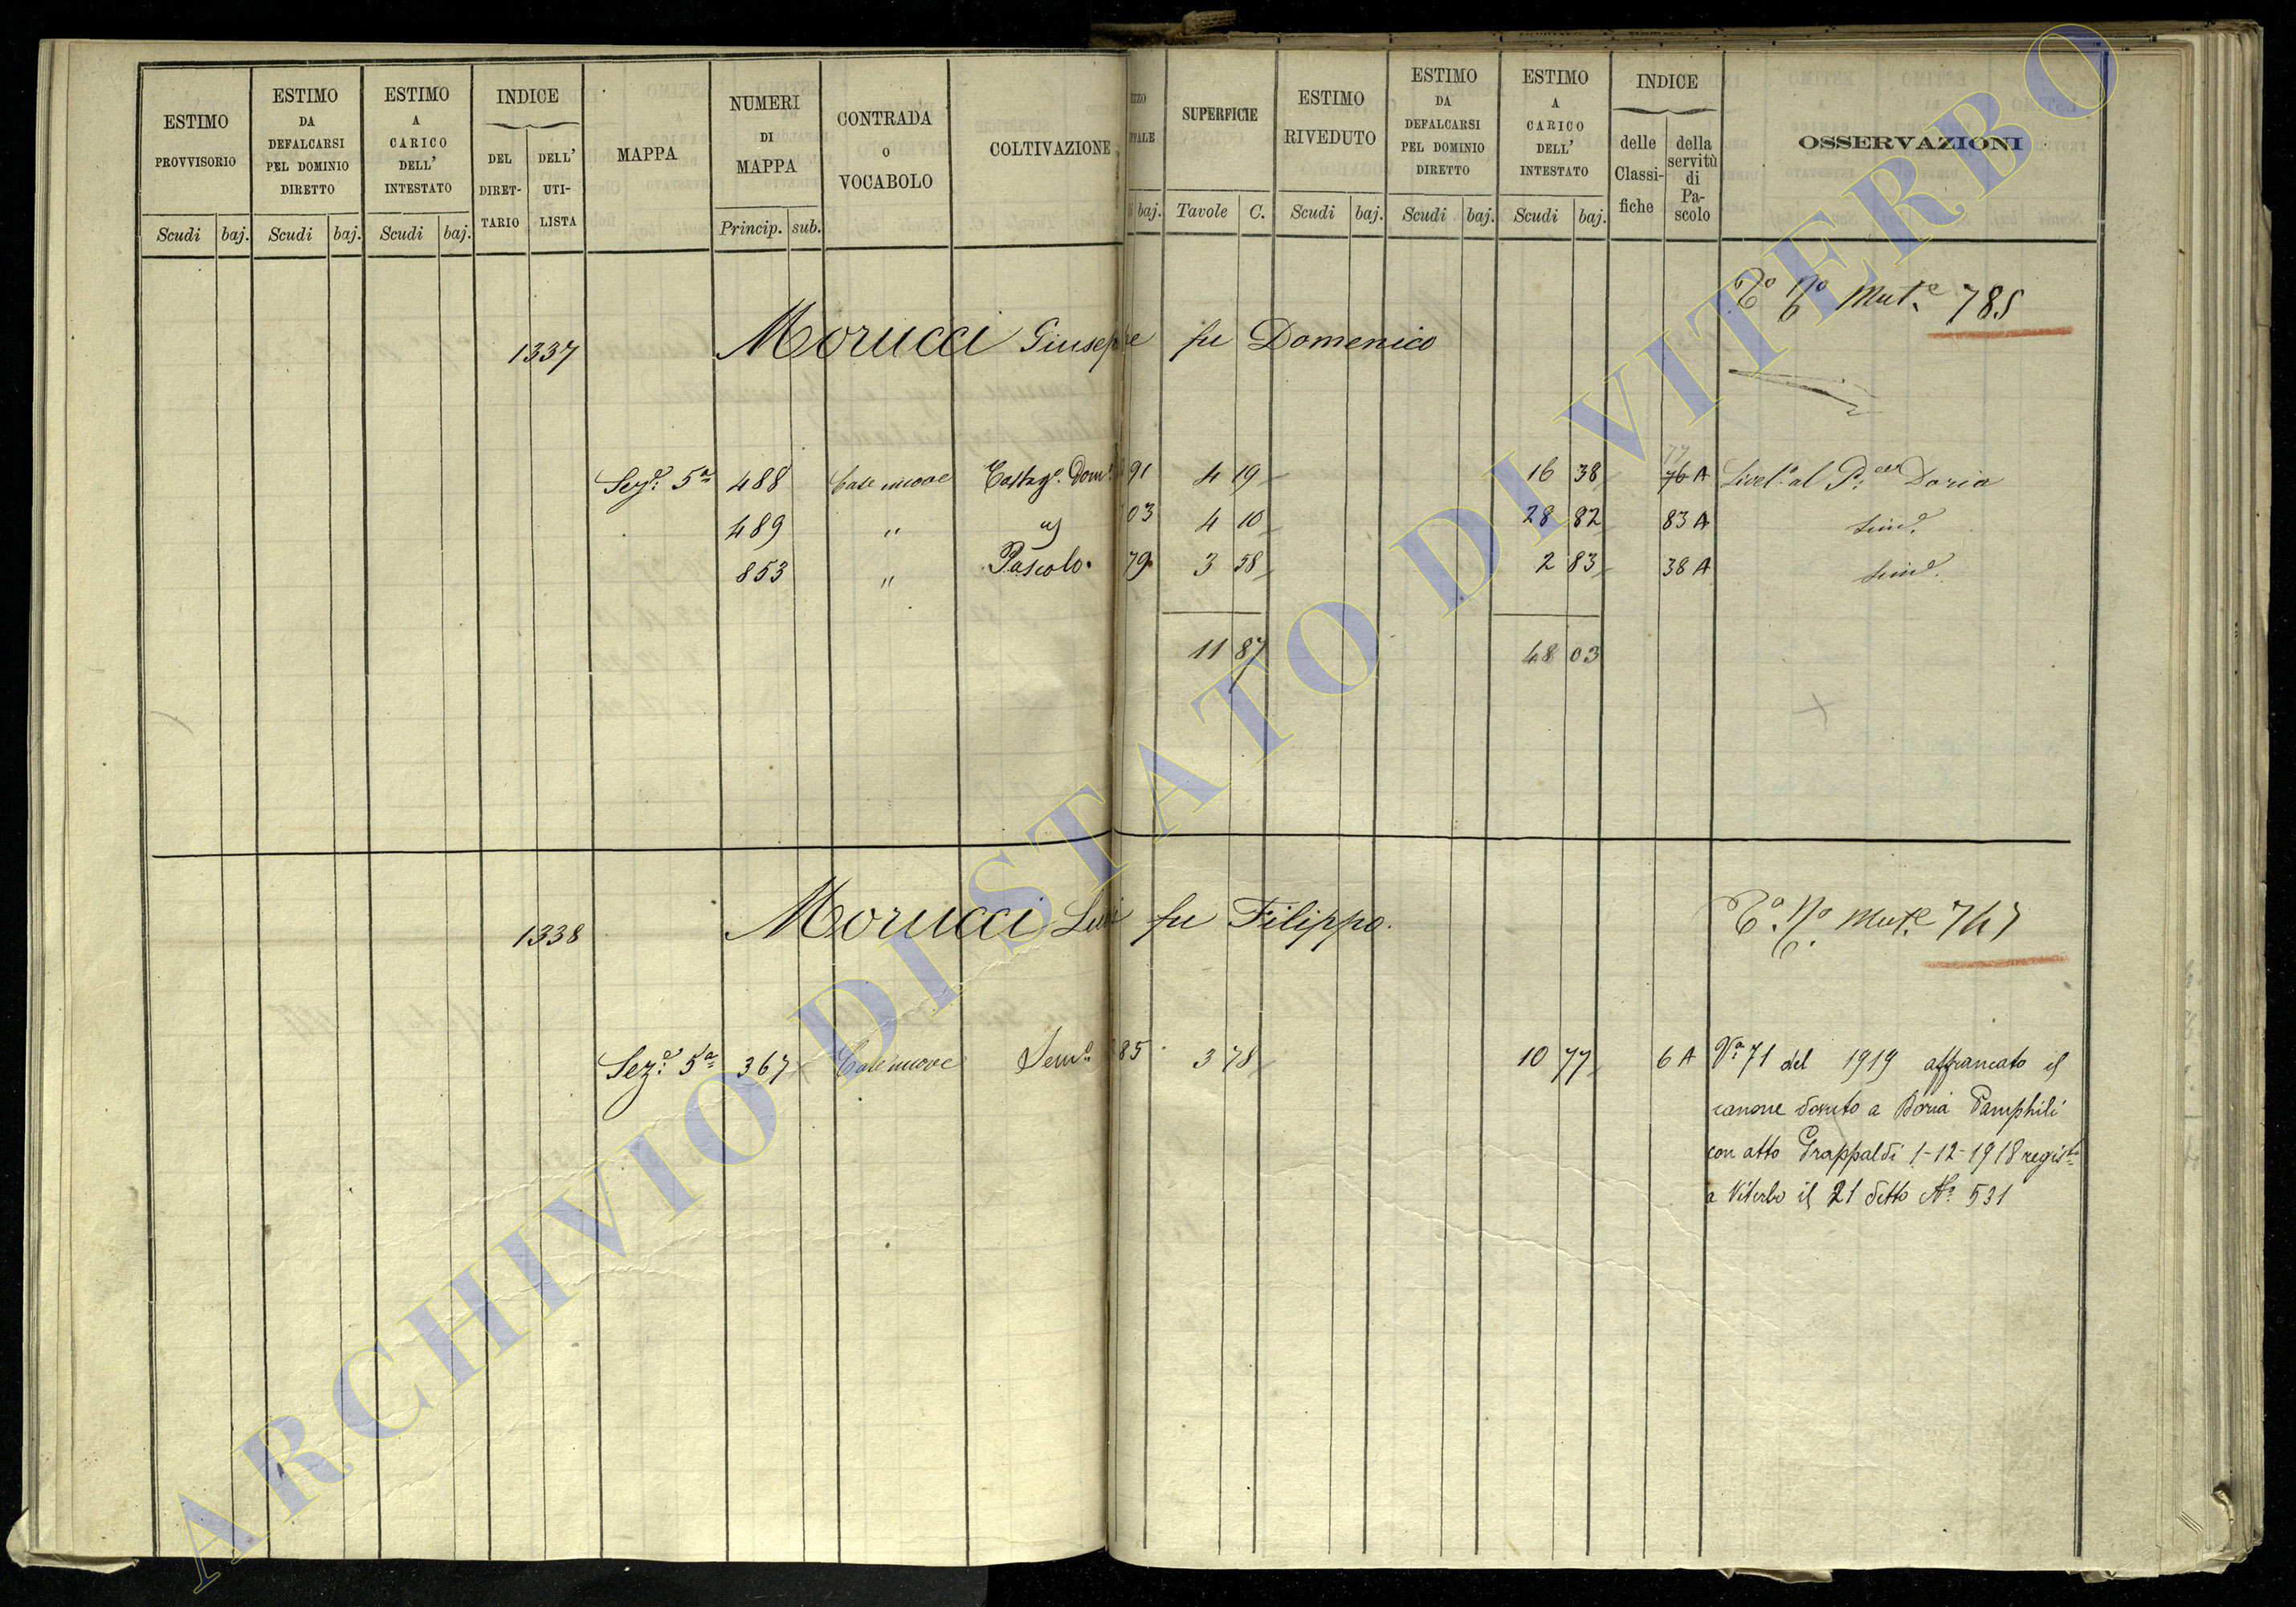 ESTIMO PROVVISORIO
Scudi baj.
ESTIMO DA DEFALCARSI PEL DOMINIO DIRETTO
Scudi baj.
ESTIMO A CARICO DELL' INTESTATO
Scudi baj.
INDICE
DEL DIRET-TARIO
DELL' UTI-LISTA
MAPPA
NUMERI DI MAPPA
Princip. sub.
CONTRADA O VOCABOLO
COLTIVAZIONE
baj.
SUPERFICIE
Tavole C.
ESTIMO RIVEDUTO
Scudi baj.
ESTIMO DA DEFALCARSI PEL DOMINIO DIRETTO
Scudi baj.
ESTIMO A CARICO DELL' INTESTATO
Scudi baj.
INDICE
delle Classi-fiche
della servitù di Pa-scolo
OSSERVAZIONI
Mut.e 785
1337 Morucci Giuseppe fu Domenico
77
Sez.e 5a 488 Case nuove Castag. Dom. 91 4 19 16 38 76 A Livel. al P. Doria
489 " " 03 4 10 28 82 83 A sim.e
853 " Pascolo 79 3 58 2 83 38 A sim.e
11 87 48 03
Mut.e 767
1338 Morucci fu Filippo.
Sez.e 5a 367 Case nuove Sem.o 85 3 78 10 77 6 A Va 71 del 1919 affrancato il
canone dovuto a Doria Pamphili
con atto Grappaldi 1-12-1918 regist.
a Viterbo il 21 detto N. 531
ARCHIVIO DI STATO DI VITERBO